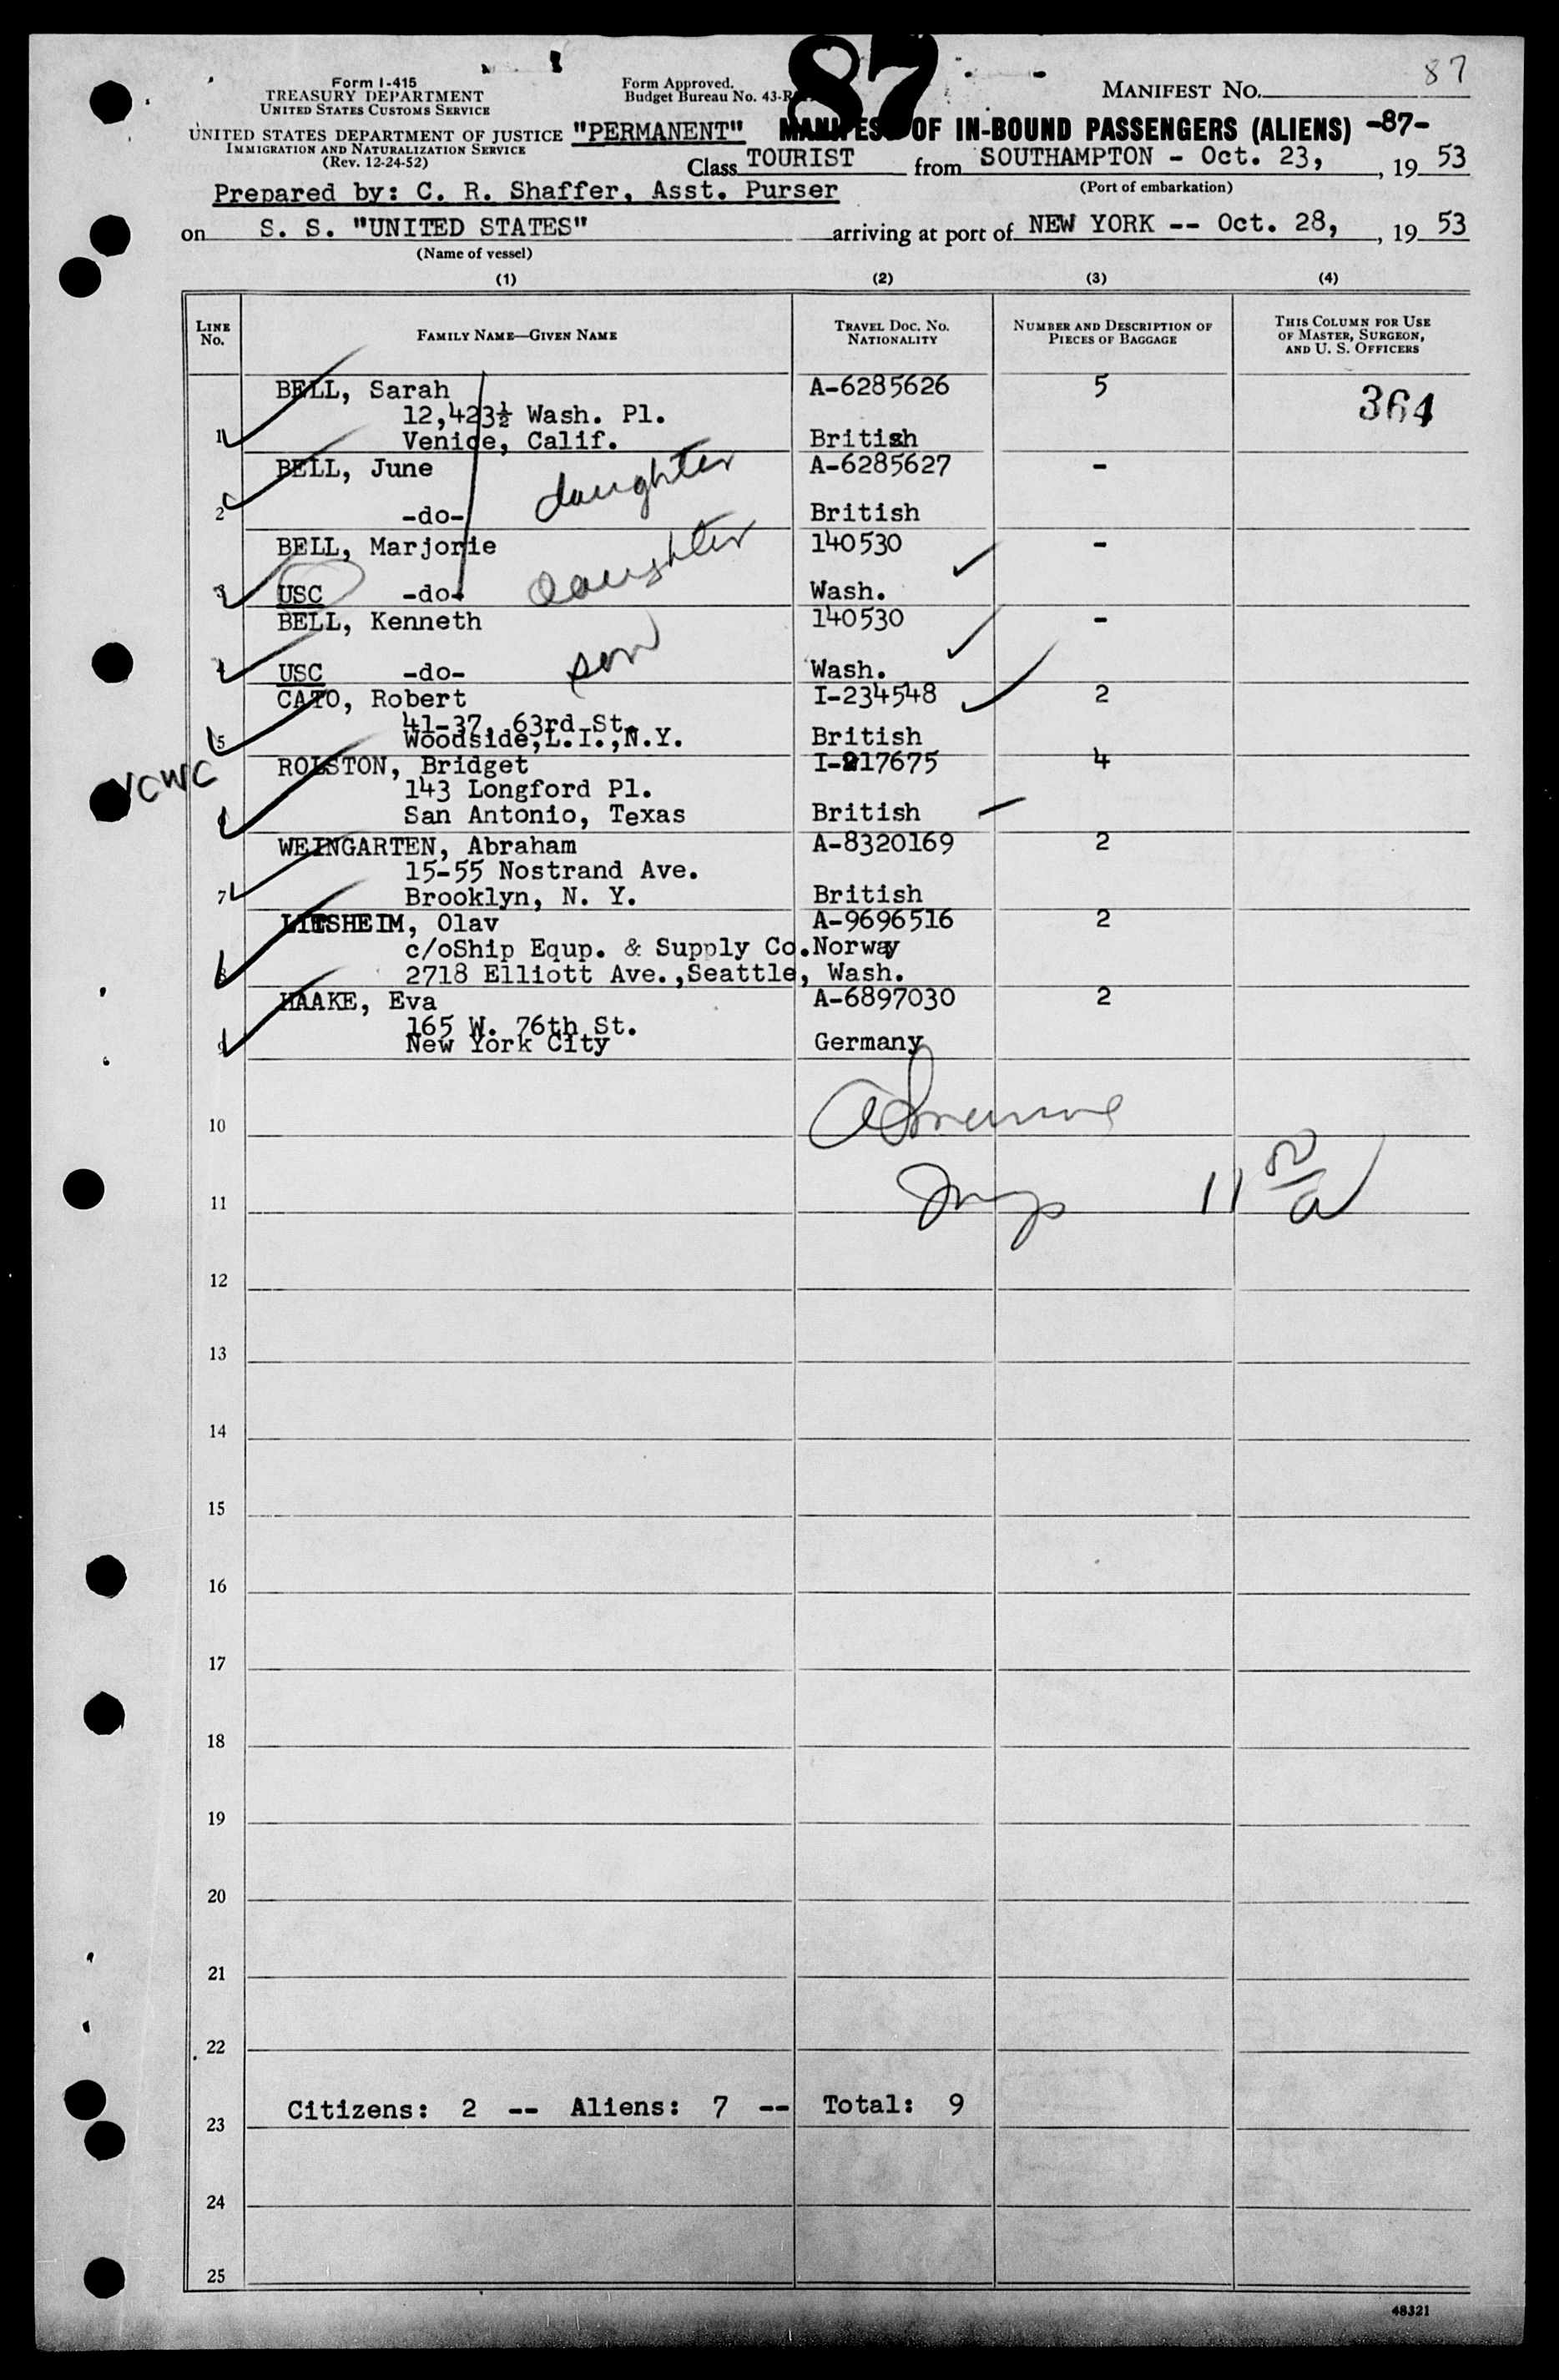 87
Form I-415
TREASURY DEPARTMENT
UNITED STATES CUSTOMS SERVICE
UNITED STATES DEPARTMENT OF JUSTICE
IMMIGRATION AND NATURALIZATION SERVICE
(Rev. 12-24-52)
Form Approved.
Budget Bureau No. 43-R
MANIFEST NO. 87
"PERMANENT" MANIFEST OF IN-BOUND PASSENGERS (ALIENS) -87-
Class TOURIST from SOUTHAMPTON - Oct. 23, , 19 53
(Port of embarkation)
Prepared by: C. R. Shaffer, Asst. Purser
on S. S. "UNITED STATES" arriving at port of NEW YORK -- Oct. 28, , 19 53
(Name of vessel)
(1) (2) (3) (4)
LINE No. FAMILY NAME—GIVEN NAME TRAVEL DOC. NO. NATIONALITY NUMBER AND DESCRIPTION OF PIECES OF BAGGAGE THIS COLUMN FOR USE OF MASTER, SURGEON, AND U. S. OFFICERS
BELL, Sarah A-6285626 5 364
12,423½ Wash. Pl.
1 Venice, Calif. British
BELL, June daughter A-6285627 -
2 -do- British
BELL, Marjorie daughter 140530 -
3 USC -do- Wash.
BELL, Kenneth son 140530 -
4 USC -do- Wash.
CATO, Robert I-234548 2
41-37, 63rd St.
5 Woodside,L.I.,N.Y. British
ROLSTON, Bridget I-217675 4
143 Longford Pl.
6 San Antonio, Texas British
WEINGARTEN, Abraham A-8320169 2
15-55 Nostrand Ave.
7 Brooklyn, N. Y. British
Olav A-9696516 2
c/oShip Equp. & Supply Co.Norway
8 2718 Elliott Ave.,Seattle, Wash.
HAAKE, Eva A-6897030 2
165 W. 76th St.
9 New York City Germany
10
11
12
13
14
15
16
17
18
19
20
21
22
23 Citizens: 2 -- Aliens: 7 -- Total: 9
24
25
48321